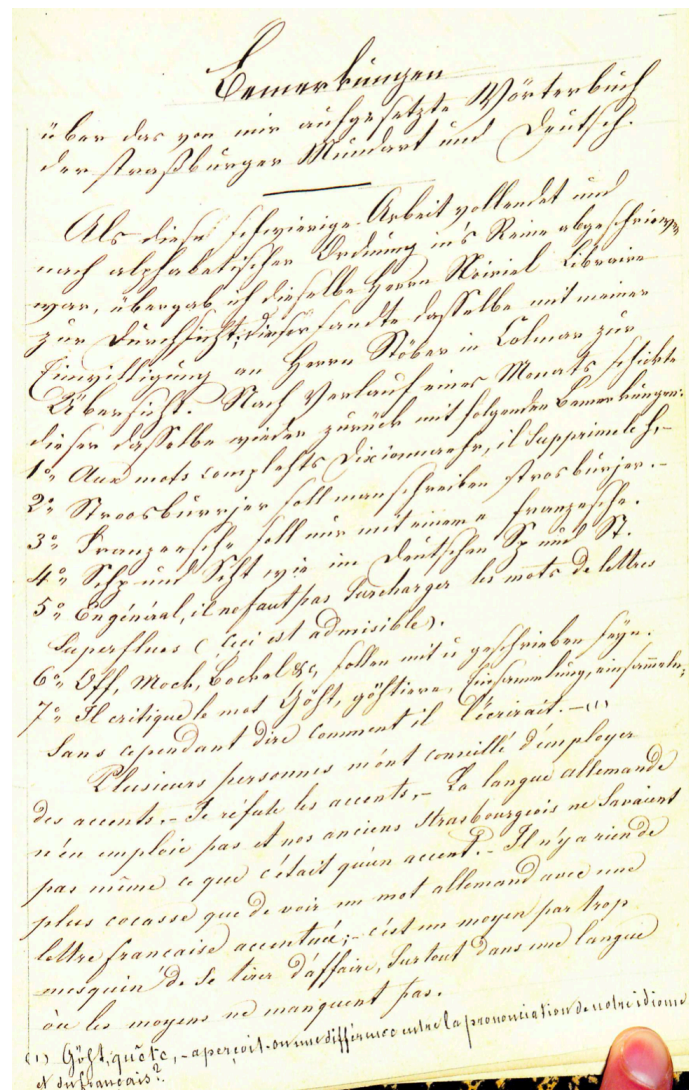 Bemerkungen
über das von mir aufgesetzte Wörterbuch
der straßburger Mundart und Deutsch.
Als diese schwierige Arbeit vollendet und
nach alphabetischer Ordnung in's Reine abgeschrieben
war, übergab ich dieselbe Herrn Libraire
zur Durchsicht; dieser sandte dasselbe mit meiner
Einwilligung an Herrn Stöber in Colmar zur
Übersicht. Nach Verlauf eines Monats schickte
dieser dasselbe wieder zurück mit folgenden Bemerkungen:
1º Aux mots complehts Dixionnaehr, il supprime le h,-
2º Stroosburrjer soll man schreiben strosburjer.-
3º Franzeesch soll nur mit einem e franzesche.
4º Schp und Scht wie im Deutschen Sp und St.
5º En général, il ne faut pas surcharger les mots de lettres
superflues (ceci est admisible).
6º Off, Mock, Bockel &c, sollen mit u geschrieben seyn.
7º Il critique le mot Göht, göhtiere, Einsammlung, einsammeln;
sans cependant dire comment il l'écrirait.-(1)
Plusieurs personnes m'ont conseillé d'employer
des accents.- Je réfute les accents,- La langue allemande
n'en emploie pas et nos anciens Strasbourgeois ne savaient
pas même ce que c'était qu'un accent.- Il n'y a rien de
plus cocasse que de voir un mot allemand avec une
lettre francaise accentuée;- c'est un moyen par trop
mesquin de se tirer d'affaire, surtout dans une langue
où les moyens ne manquent pas.
(1) Göht, quête,- aperçoit-on une différence entre la prononciation de notre idiome
et du francais?